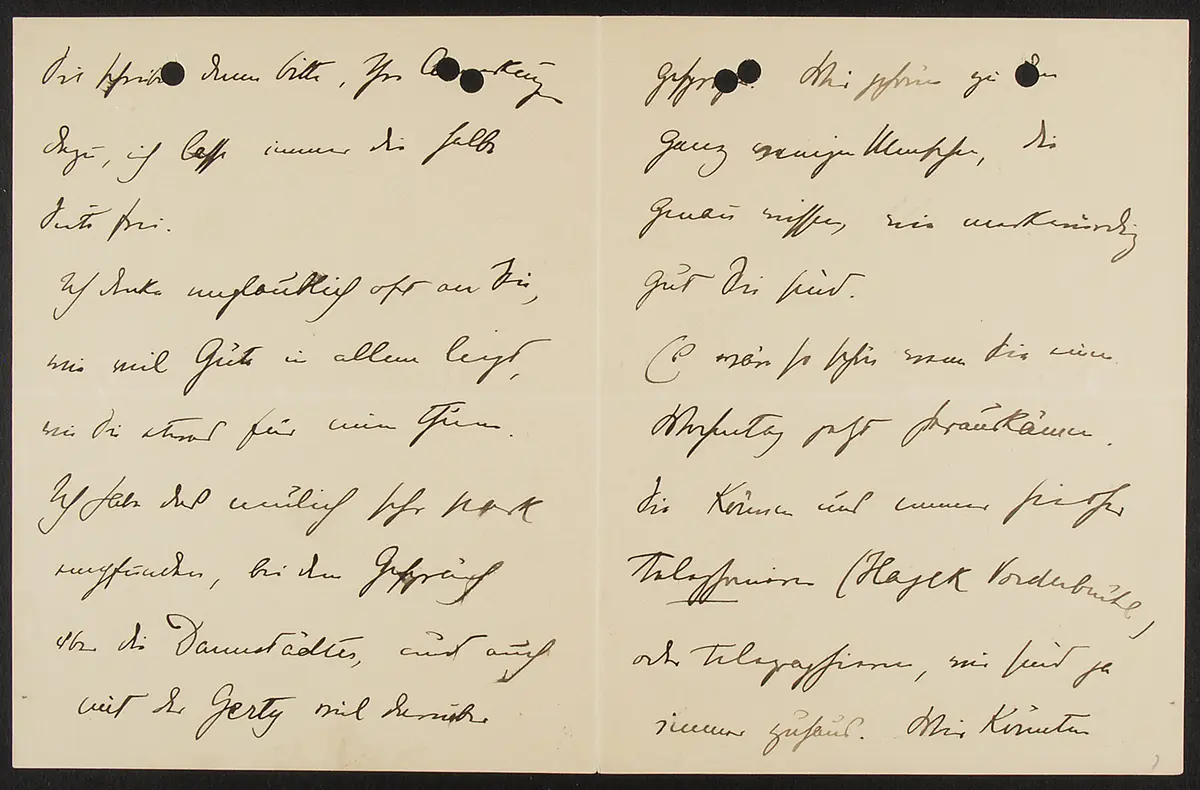 Sie schreiben dann bitte, Ihre Bemerkungen
dazu, ich lasse immer die halbe
Seite frei.
Ich denke unglaublich oft an Sie,
wie viel Güte in allem liegt,
was Sie etwa für einen thun.
Ich habe das neulich sehr stark
empfunden, bei dem Gespräch
über die Darmstädter, und auch
mit der Gerty viel darüber
gesprochen. Wir gehören zu den
ganz wenigen Menschen, die
genau wissen, wie merkwürdig
gut Sie sind.
Es wäre so schön wenn Sie einen
Wochentag jetzt herauskämen.
Sie können uns immer hierher
telephonieren (Hajek Vorderbrühl)
oder telegraphieren, wir sind ja
immer zuhaus. Wir könnten